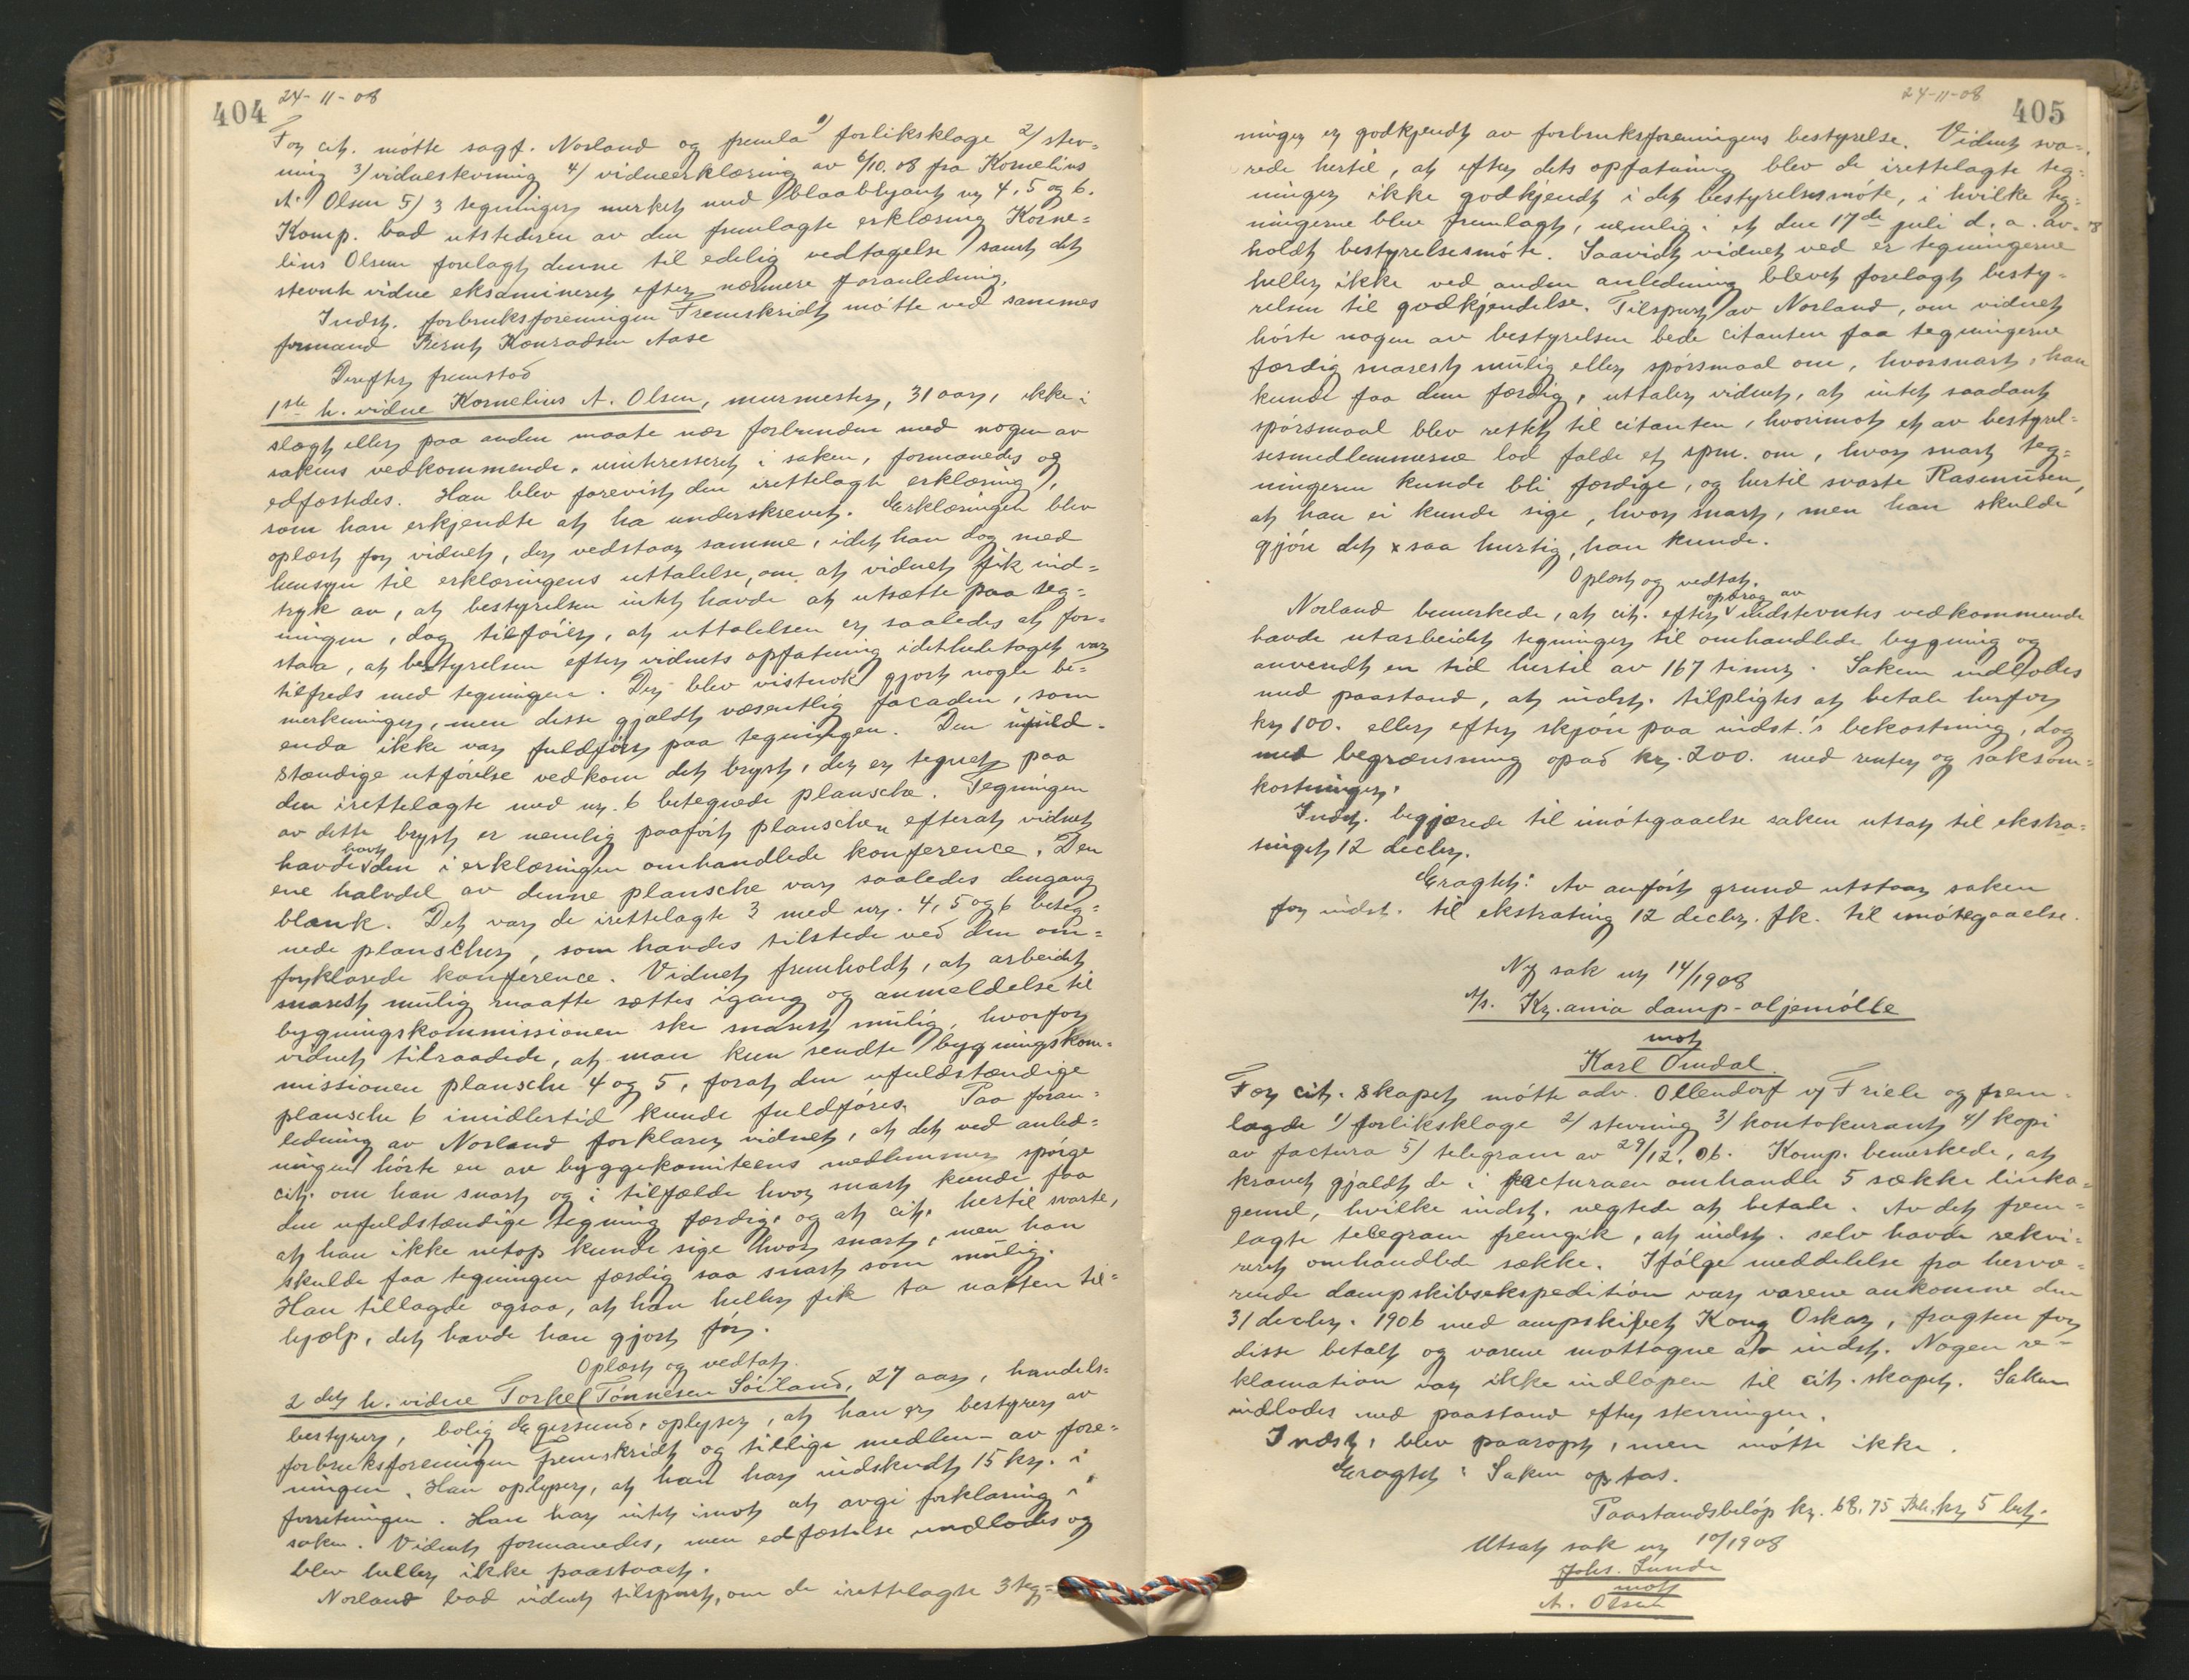 404 24-11-08
For cit. møtte sagf. Norland og fremla 1) forliksklage 2) stev=
ning 3) vidnestevning 4) vidneerklæring av 6/10. 08 fra Kornelius
A. Olsen 5) 3 tegninger merket med blaablyant nr 4, 5 og 6.
Komp. bad utstederen av den fremlagte erklæring Korne=
lius Olsen forelagt denne til edelig vedtagelse samt det
stevnte vidne eksamineret efter nærmere foranledning.
Indst. forbruksforeningen Fremskridt møtte ved sammes
formand Bernt Konradsen Aase
Derefter fremstod
1ste h. vidne Kornelius A. Olsen, murmester, 31 aar, ikke i
slegt eller paa anden maate nær forbunden med nogen av
sakens vedkommende, uinteresseret i saken, formanedes og
edfæstedes. Han blev forevist den irettelagte erklæring,
som han erkjendte at ha underskrevet. Erklæringen blev
oplæst for vidnet, der vedstaar samme, idet han dog med
hensyn til erklæringens uttalelse, om at vidnet fik ind=
tryk av, at bestyrelsen intet havde at utsætte paa teg=
ningen, dog tilføier, at uttalelsen er saaledes at for=
staa, at bestyrelsen efter vidnets opfatning idetheletaget var
tilfreds med tegningen. Der blev vistnok gjort nogle be=
merkninger, men disse gjaldt væsentlig facaden, som
enda ikke var fuldført paa tegningen. Den ufuld=
stændige utførelse vedkom det bryst, der er tegnet paa
den irettelagte med nr. 6 betegnede plansche. Tegningen
av dette bryst er nemlig paaført planschen efterat vidnet
havde havt den i erklæringen omhandlede konference. Den
ene halvdel av denne plansche var saaledes dengang
blank. Det var de irettelagte 3 med nr. 4, 5 og 6 beteg=
nede planscher, som havdes tilstede ved den om=
forklarede konference. Vidnet fremholdt, at arbeidet
snarest mulig maatte sættes igang og anmeldelse til
bygningskommissionen ske snarest mulig, hvorfor
vidnet tilraadede, at man kun sendte bygningskom=
missionen plansche 4 og 5, forat den ufuldstændige
plansche 6 imidlertid kunde fuldføres. Paa foran=
ledning av Norland forklarer vidnet, at det ved anled=
ningen hørte en av byggekomiteens medlemmer spørge
cit. om han snart og i tilfælde hvor snart kunde faa
den ufuldstændige tegning færdig, og at cit. hertil svarte,
at han ikke netop kunde sige hvor snart, men han
skulde faa tegningen færdig saa snart som mulig.
Han tillagde ogsaa, at han heller fik ta natten til=
hjælp, det havde han gjort før.
Oplæst og vedtat.
2 det h. vidne Torkel Tønnesen Søiland, 27 aar, handels=
bestyrer, bolig Egersund, oplyser, at han er bestyrer av
forbruksforeningen Fremskridt og tillige medlem av fore=
ningen. Han oplyser, at han har indskudt 15 kr. i
forretningen. Han har intet imot at avgi forklaring i
saken. Vidnet formanedes, men edfæstelse undlodes og
blev heller ikke paastaaet.
Norland bad vidnet tilspurt, om de irettelagte 3 teg=
24-11-08 405
ninger er godkjendt av forbruksforeningens bestyrelse. Vidnet sva=
rede hertil, at efter dets opfatning blev de irettelagte teg=
ninger ikke godkjendt i det bestyrelsesmøte, i hvilke teg=
ningerne blev fremlagt, nemlig i et den 17de juli d. a. av=
holdt bestyrelsesmøte. Saavidt vidnet ved er tegningerne
heller ikke ved anden anledning blevet forelagt besty=
relsen til godkjendelse. Tilspurt av Norland, om vidnet
hørte nogen av bestyrelsen bede citanten faa tegningerne
færdig snarest mulig eller spørsmaal om, hvorsnart, han
kunde faa dem færdig, uttaler vidnet, at intet saadant
spørsmaal blev rettet til citanten, hvorimot et av bestyrel=
sesmedlemmerne lod falde et spm. om, hvor snart teg=
ningerne kunde bli færdige, og hertil svarte Rasmussen,
at han ei kunde sige, hvor snart, men han skulde
gjøre det x saa hurtig, han kunde.
Oplæst og vedtat.
Norland bemerkede, at cit. efter opdrag av indstevntes vedkommende
havde utarbeidet tegninger til omhandlede bygning og
anvendt en tid hertil av 167 timer. Saken indlodes
med paastand, at indst. tilpligtes at betale herfor
kr 100. eller efter skjøn paa indst.'s bekostning, dog
med begrænsning opad kr. 200. med renter og saksom=
kostninger.
Indst. begjærede til imøtegaaelse saken utsat til ekstra=
tinget 12 decbr.
Eragtet: Av anført grund utstaar saken
for indst. til ekstrating 12 decbr. fk. til imøtegaaelse.
Ny sak nr 14/1908
A/s. Kr.ania damp-oljemølle
mot
Karl Omdal.
For cit. skapet møtte adv. Ollendorf v/ Friele og frem=
lagde 1) forliksklage 2) stevning 3) kontokurant 4) kopi
av factura 5) telegram av 29/12. 06. Komp. bemerkede, at
kravet gjaldt de i facturaen omhandle 5 sække linka=
gemel, hvilke indst. vegtede at betale. Av det frem=
lagte telegram fremgik, at indst. selv havde rekvi=
rert omhandlede sække. Ifølge meddelelse fra herva=
rende dampskibsekspedition var varene ankomne den
31 decbr. 1906 med ampskibet Kong Oskar, fragten for
disse betalt og varene mottagne av indst. Nogen re=
klamation var ikke indløpen til cit. skapet. Saken
indlodes med paastand efter stevningen.
Indst. blev paaropt, men møtte ikke.
Eragtet: Saken optas.
Paastandsbeløp kr. 68.75 kr 5 bet.
Utsat sak nr 10/1908
Johs. Lunde
mot
A. Olsen